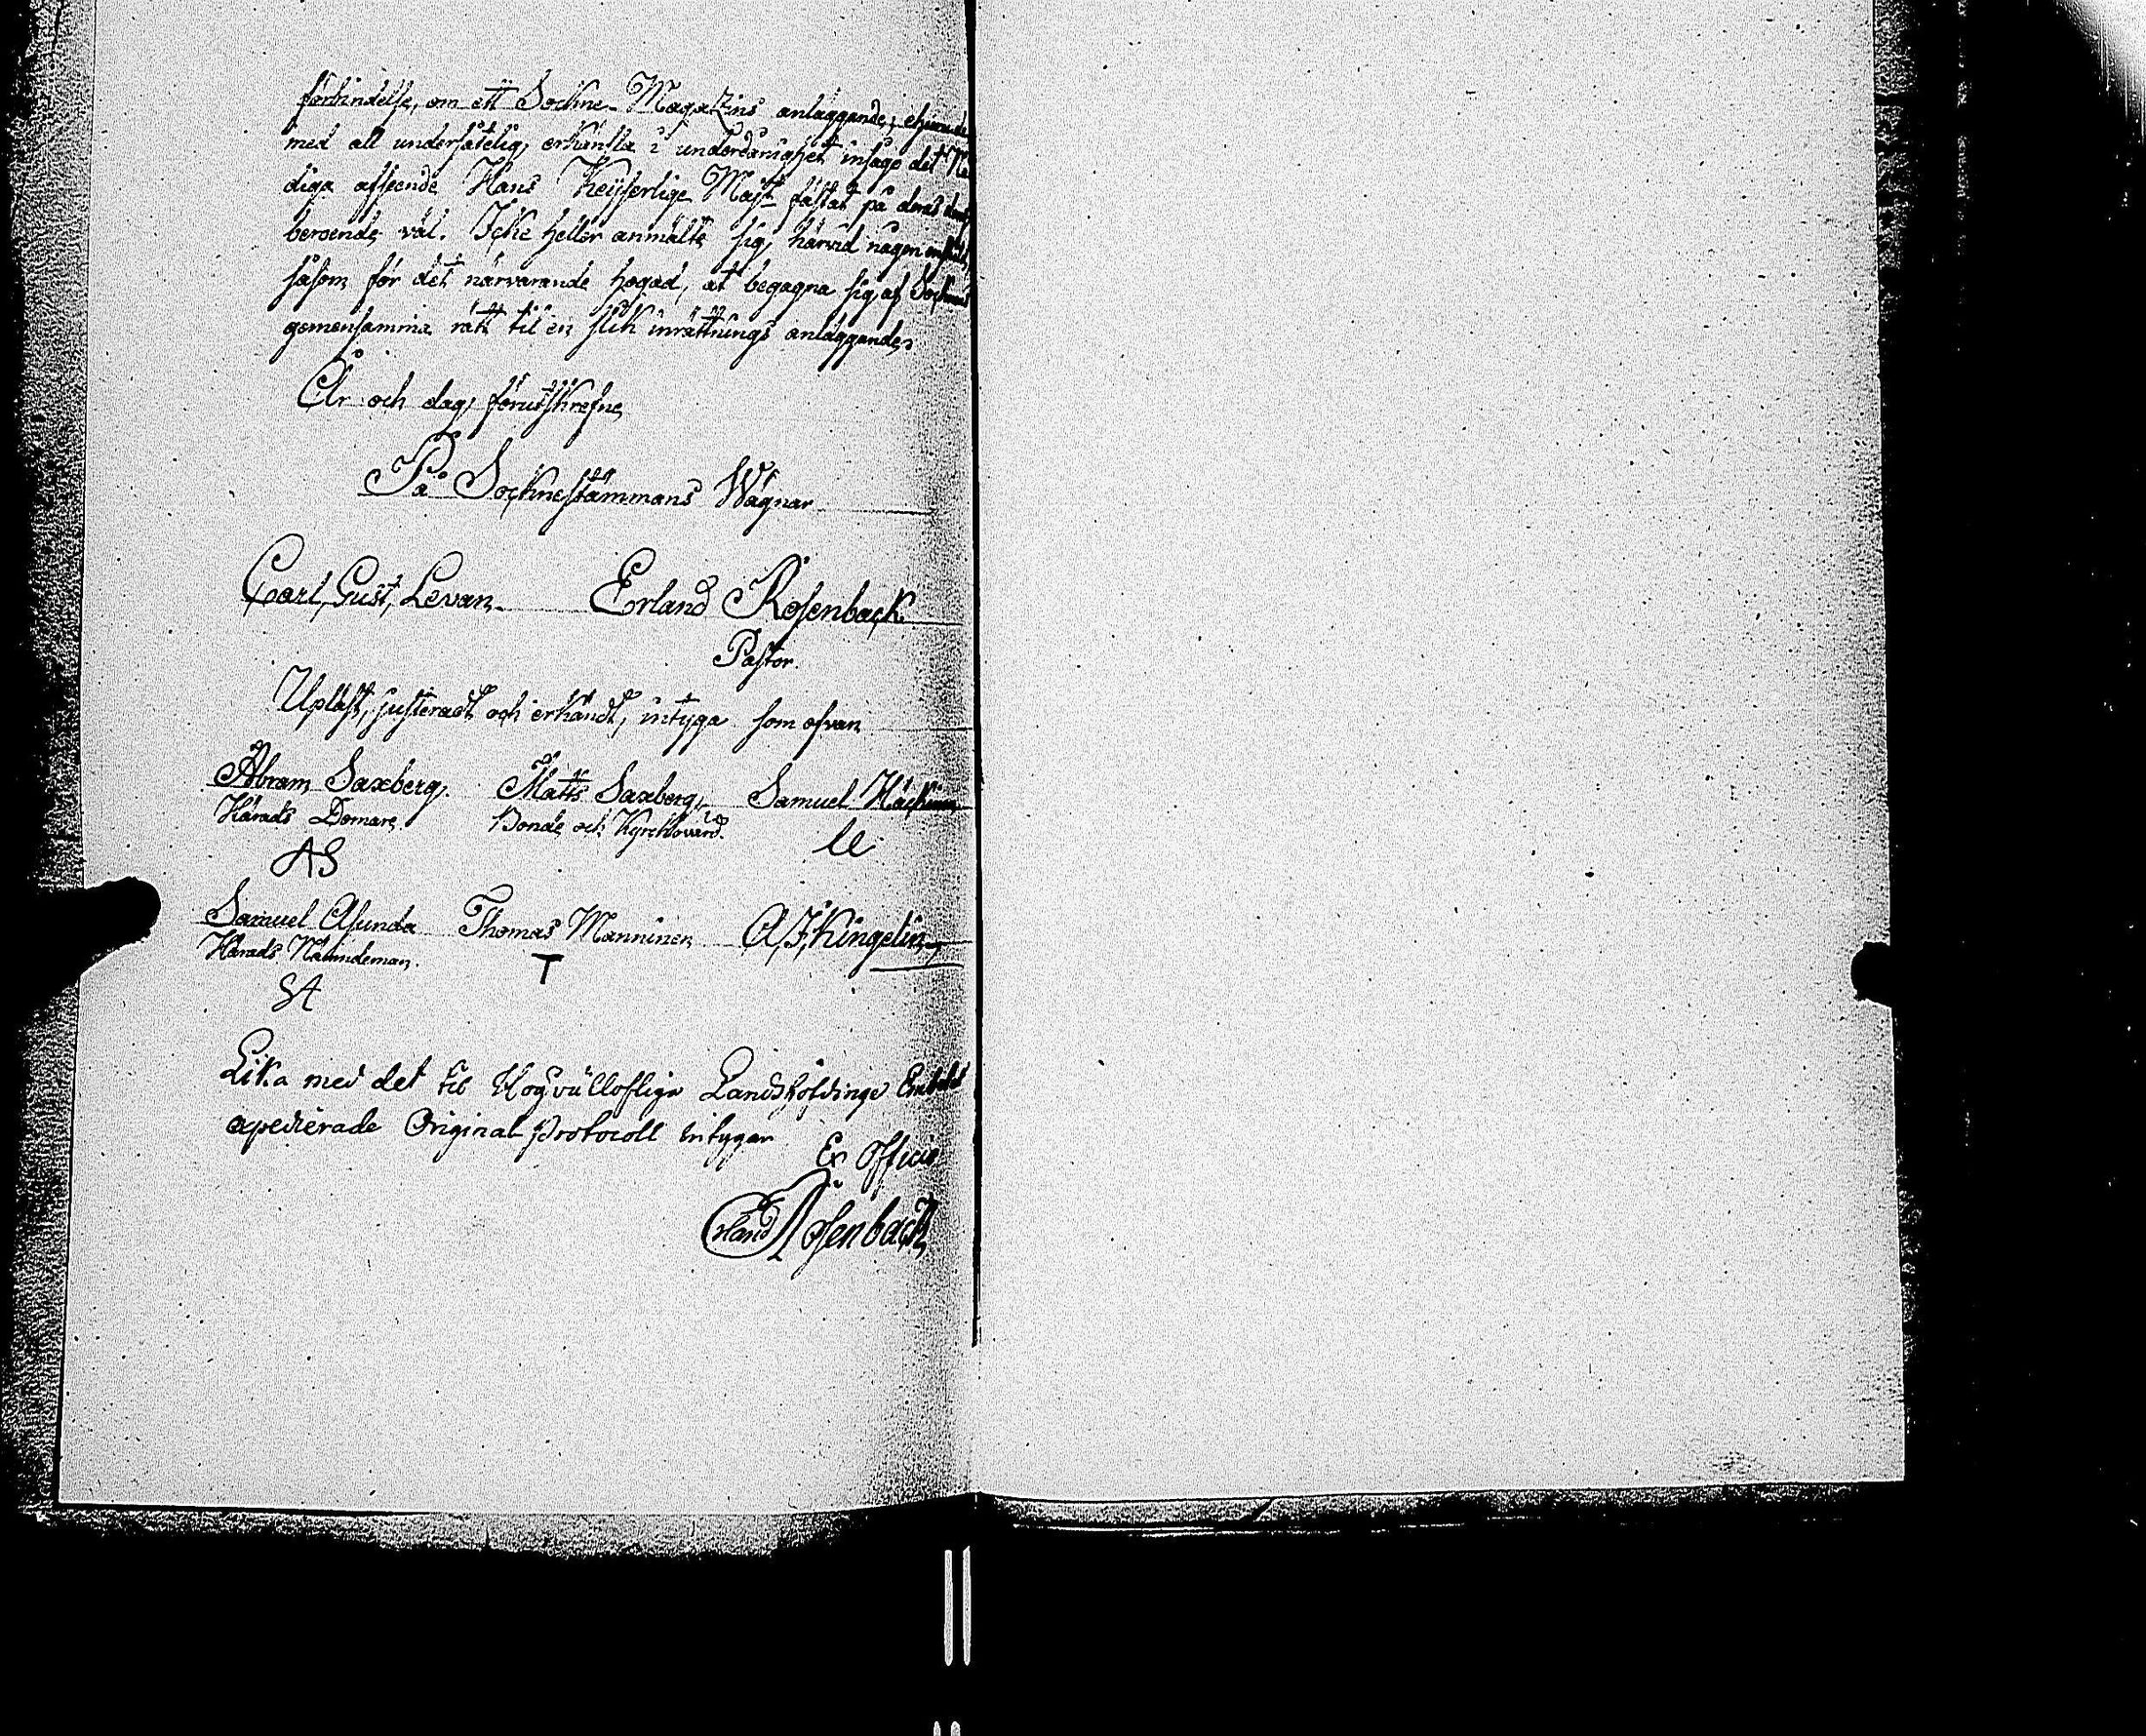 förbindelse, om ett Sockne-Magazins anläggande; ehuru de
med all undersåtelig, erkänsla i underdånighet insågo det Nå
diga afseende Hans Keijserlige Majst fästat på deras
beroende väl. Icke heller anmälte sig, härvid någon
såsom för det närvarande hogad, at begagna sig, af Socknens
gemensamma rätt til en slik inrättnings anläggande.
År och dag, förutskrefne
På Socknestämmans Wägnar
Carl, Gust, Levan. Erland Rosenback
Pastor.
Upläst, justeradt och erkändt, intyga som ofvan
Abram Saxberg. Matts Saxberg, Samuel
Härads Domare. Bonde och Kyrckovärd.
AS
Samuel Asunda Thomas Manninen A, F, Kingelin
Härads Nämndeman. T
SA
Lika med det til Högvällofliga Landshöfdinge Embetet
expedierade Original Protocoll intygar
Ex Officio
Erland Rosenback